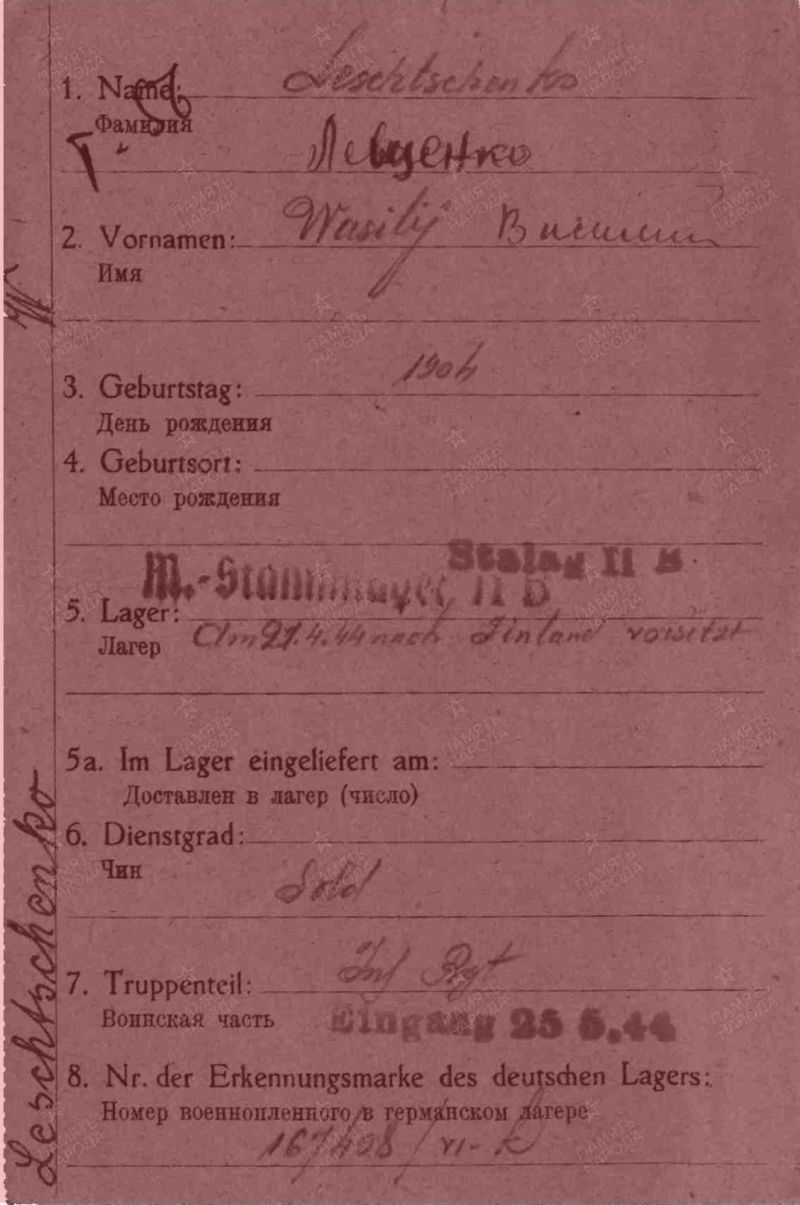 1. Name: Leschtschenko
Фамилия
Левценко
2. Vornamen: Wasilij Василий
Имя
3. Geburtstag: 1904
День рождения
4. Geburtsort:
Место рождения
Stalag II B
M.-Stammlager II B
5. Lager:
Лагер Am 21.4.44 nach Finland versetzt
5a. Im Lager eingeliefert am:
Доставлен в лагер (число)
6. Dienstgrad:
Чин
Sold
7. Truppenteil: Inf Rgt
Воинская часть Eingang 25 5.44
8. Nr. der Erkennungsmarke des deutschen Lagers:
Номер военнопленного в германском лагере
167408 / VI-K
Leschtschenko W
ПАМЯТЬ НАРОДА